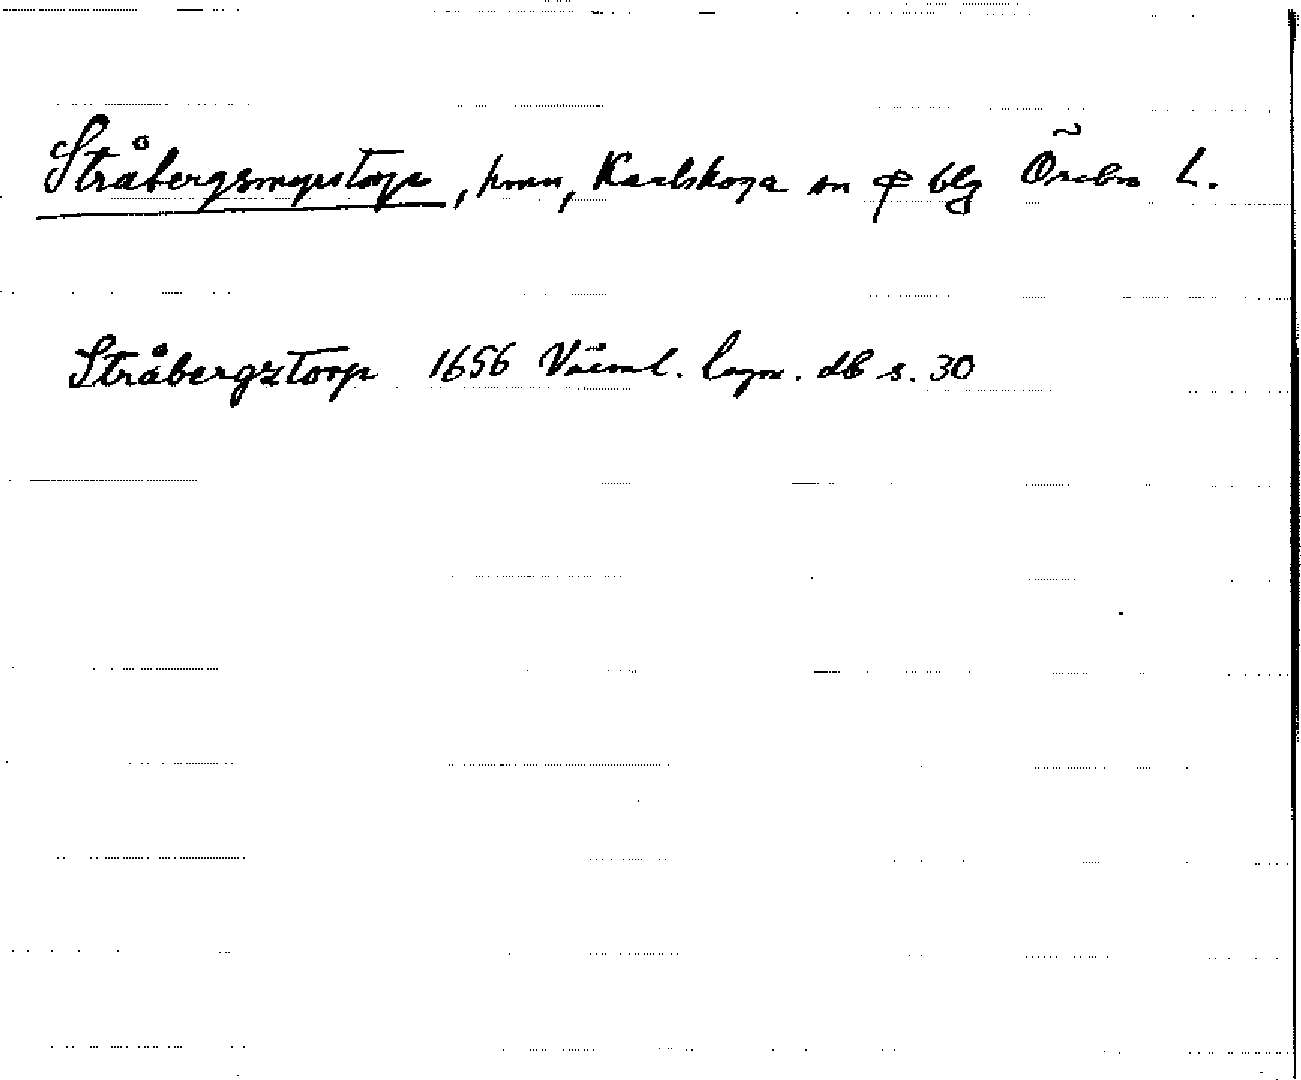 Stråbergsmyrstorp, hmn, Karlskoga sn o blg Örebro L.
Stråbergztorp 1656 Värml. lagm. db s. 30